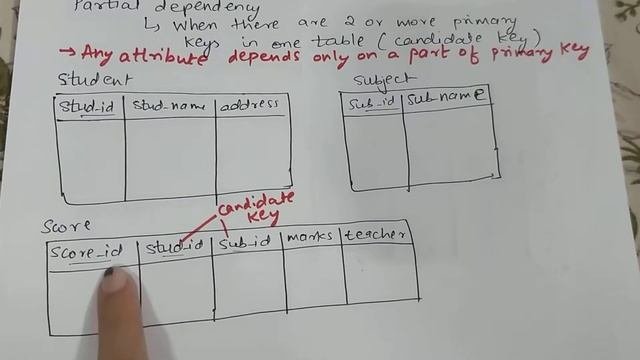 Partial dependency
↳ When there are 2 or more primary
keys in one table (candidate key)
→ Any attribute depends only on a part of primary key
Student
Stud_id stud_name address
Subject
Sub_id Subname
Score
candidate
key
Score_id stud_id sub_id marks teacher